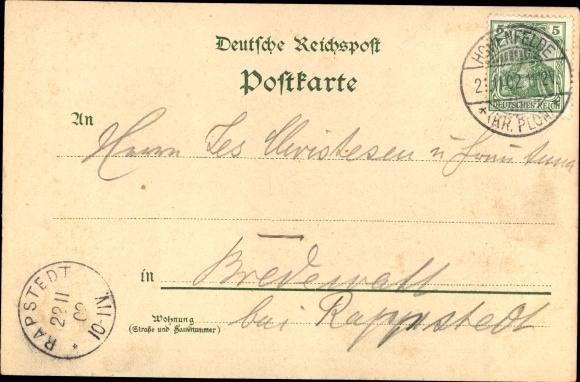 Deutsche Reichspost
Postkarte
5 5
DEUTSCHES REICH
HOHENFELDE
* (KR. PLÖN)
An
Herrn Jes Christesen u Frau
in Bredewatt
bei Rapstedt
Wohnung
(Straße und Hausnummer)
RAPSTEDT *
22 11
02
10-11V